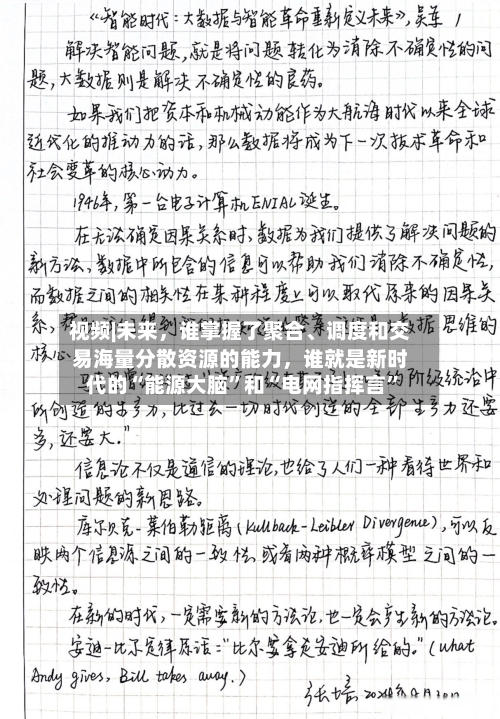 《智能时代：大数据与智能革命重新定义未来》，吴军 1
解决智能问题，就是将问题转化为消除不确定性的问
题，大数据则是解决不确定性的良药。
如果我们把资本和机械动能作为大航海时代以来全球
近代化的推动力的话，那么数据将成为下一次技术革命和
社会变革的核心动力。
1946年，第一台电子计算机ENIAC诞生。
在无法确定因果关系时，数据为我们提供了解决问题的
新方法，数据中所包含的信息可以帮助我们消除不确定性，
而数据之间的相关性在某种程度上可以取代原来的因果关
系，帮 数据思维的
视频|未来，谁掌握了聚合、调度和交
核心
易海量分散资源的能力，谁就是新时
的阶级统治中
代的“能源大脑”和“电网指挥官”
所创造的生产力，比过去一切时代创造的全部生产力还要
多，还要大。”
信息论不仅是通信的理论，也给了人们一种看待世界和
处理问题的新思路。
库尔贝克-莱伯勒距离（Kullback-Leibler Divergence），可以反
映两个信息源之间的一致性，或者两种概率模型之间的一
致性。
在新的时代，一定需要新的方法论，也一定会产生新的方法论。
安迪-比尔定律原话：“比尔要拿走安迪所给的。”（What
Andy gives, Bill takes away.）